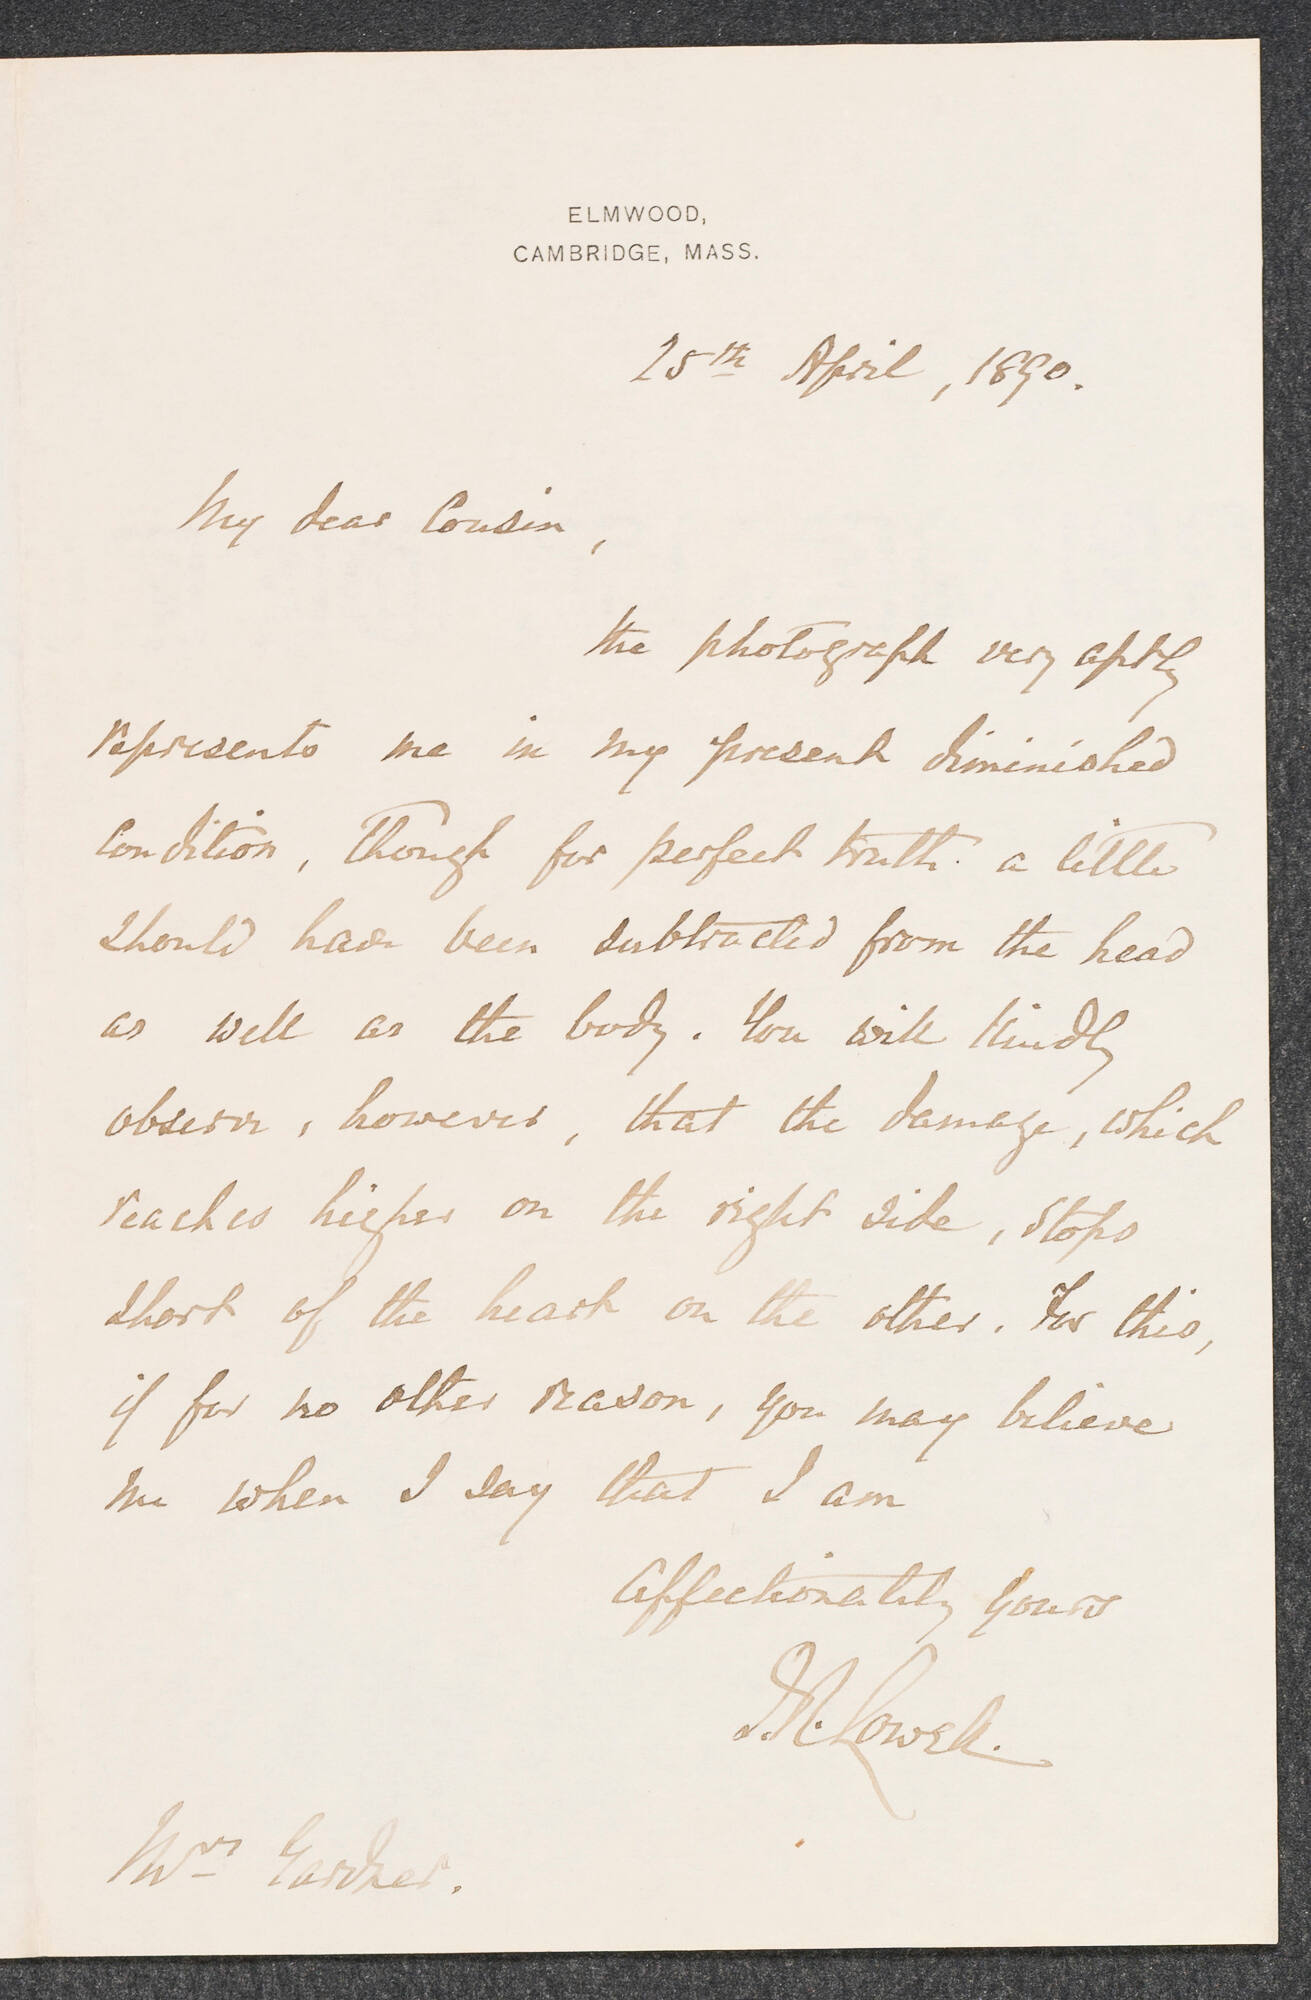 ELMWOOD,
CAMBRIDGE, MASS.
25th April, 1890.
My dear Cousin,
the photograph very aptly
represents me in my present diminished
condition, though for perfect truth a little
should have been subtracted from the head
as well as the body. You will kindly
observe, however, that the damage, which
reaches higher on the right side, stops
short of the heart on the other. For this,
if for no other reason, you may believe
me when I say that I am
affectionately yours
J. R. Lowell.
Mrs Gardner.